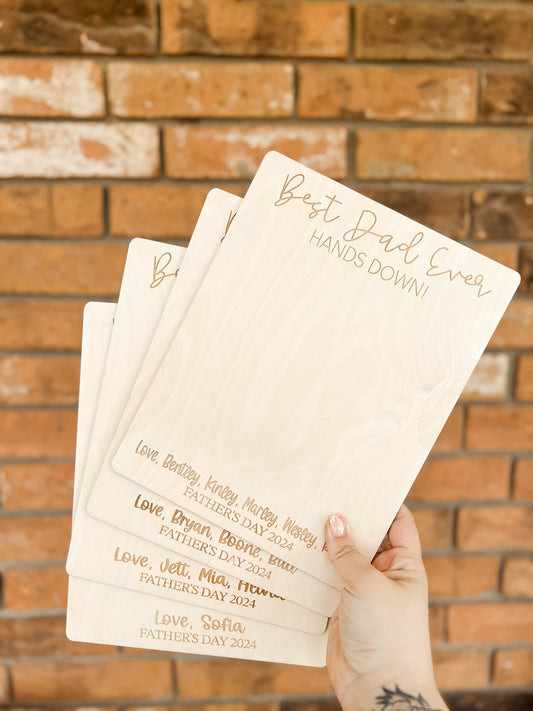 Best Dad Ever
HANDS DOWN!
Love, Bentley, Kinley, Marley, Wesley,
FATHER'S DAY 2024
Love, Bryan, Boone,
FATHER'S DAY 2024
Love, Jett, Mia,
FATHER'S DAY 2024
Love, Sofia
FATHER'S DAY 2024